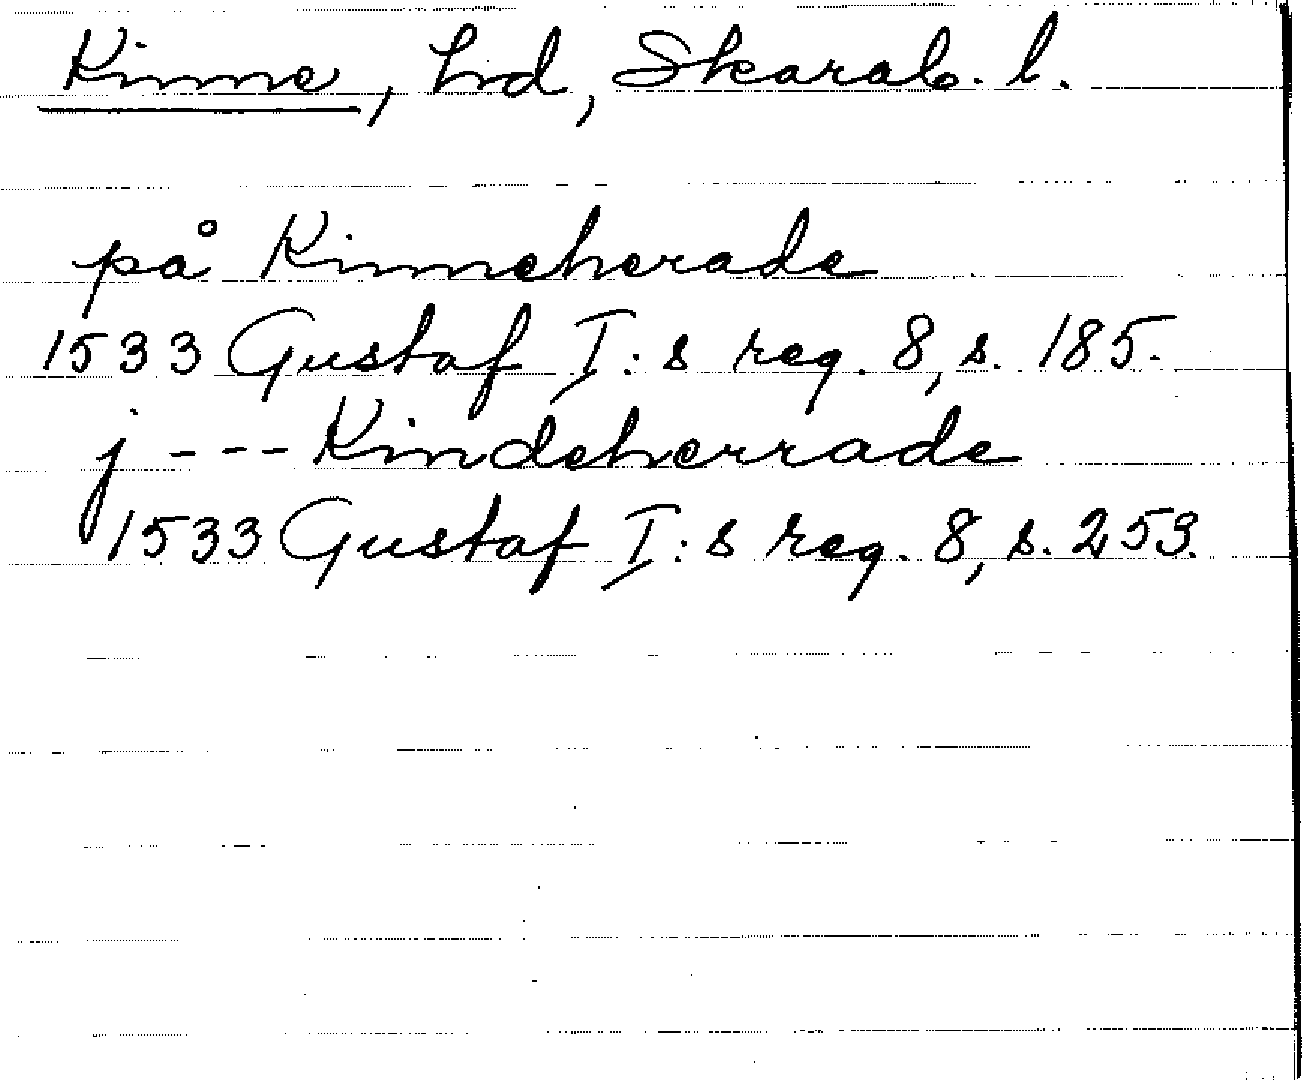 Kinne, hd, Skarab. l.
på Kinneherade
1533 Gustaf I:s reg. 8, s. 185.
j --- Kindeherrade
1533 Gustaf I:s reg. 8, s. 253.